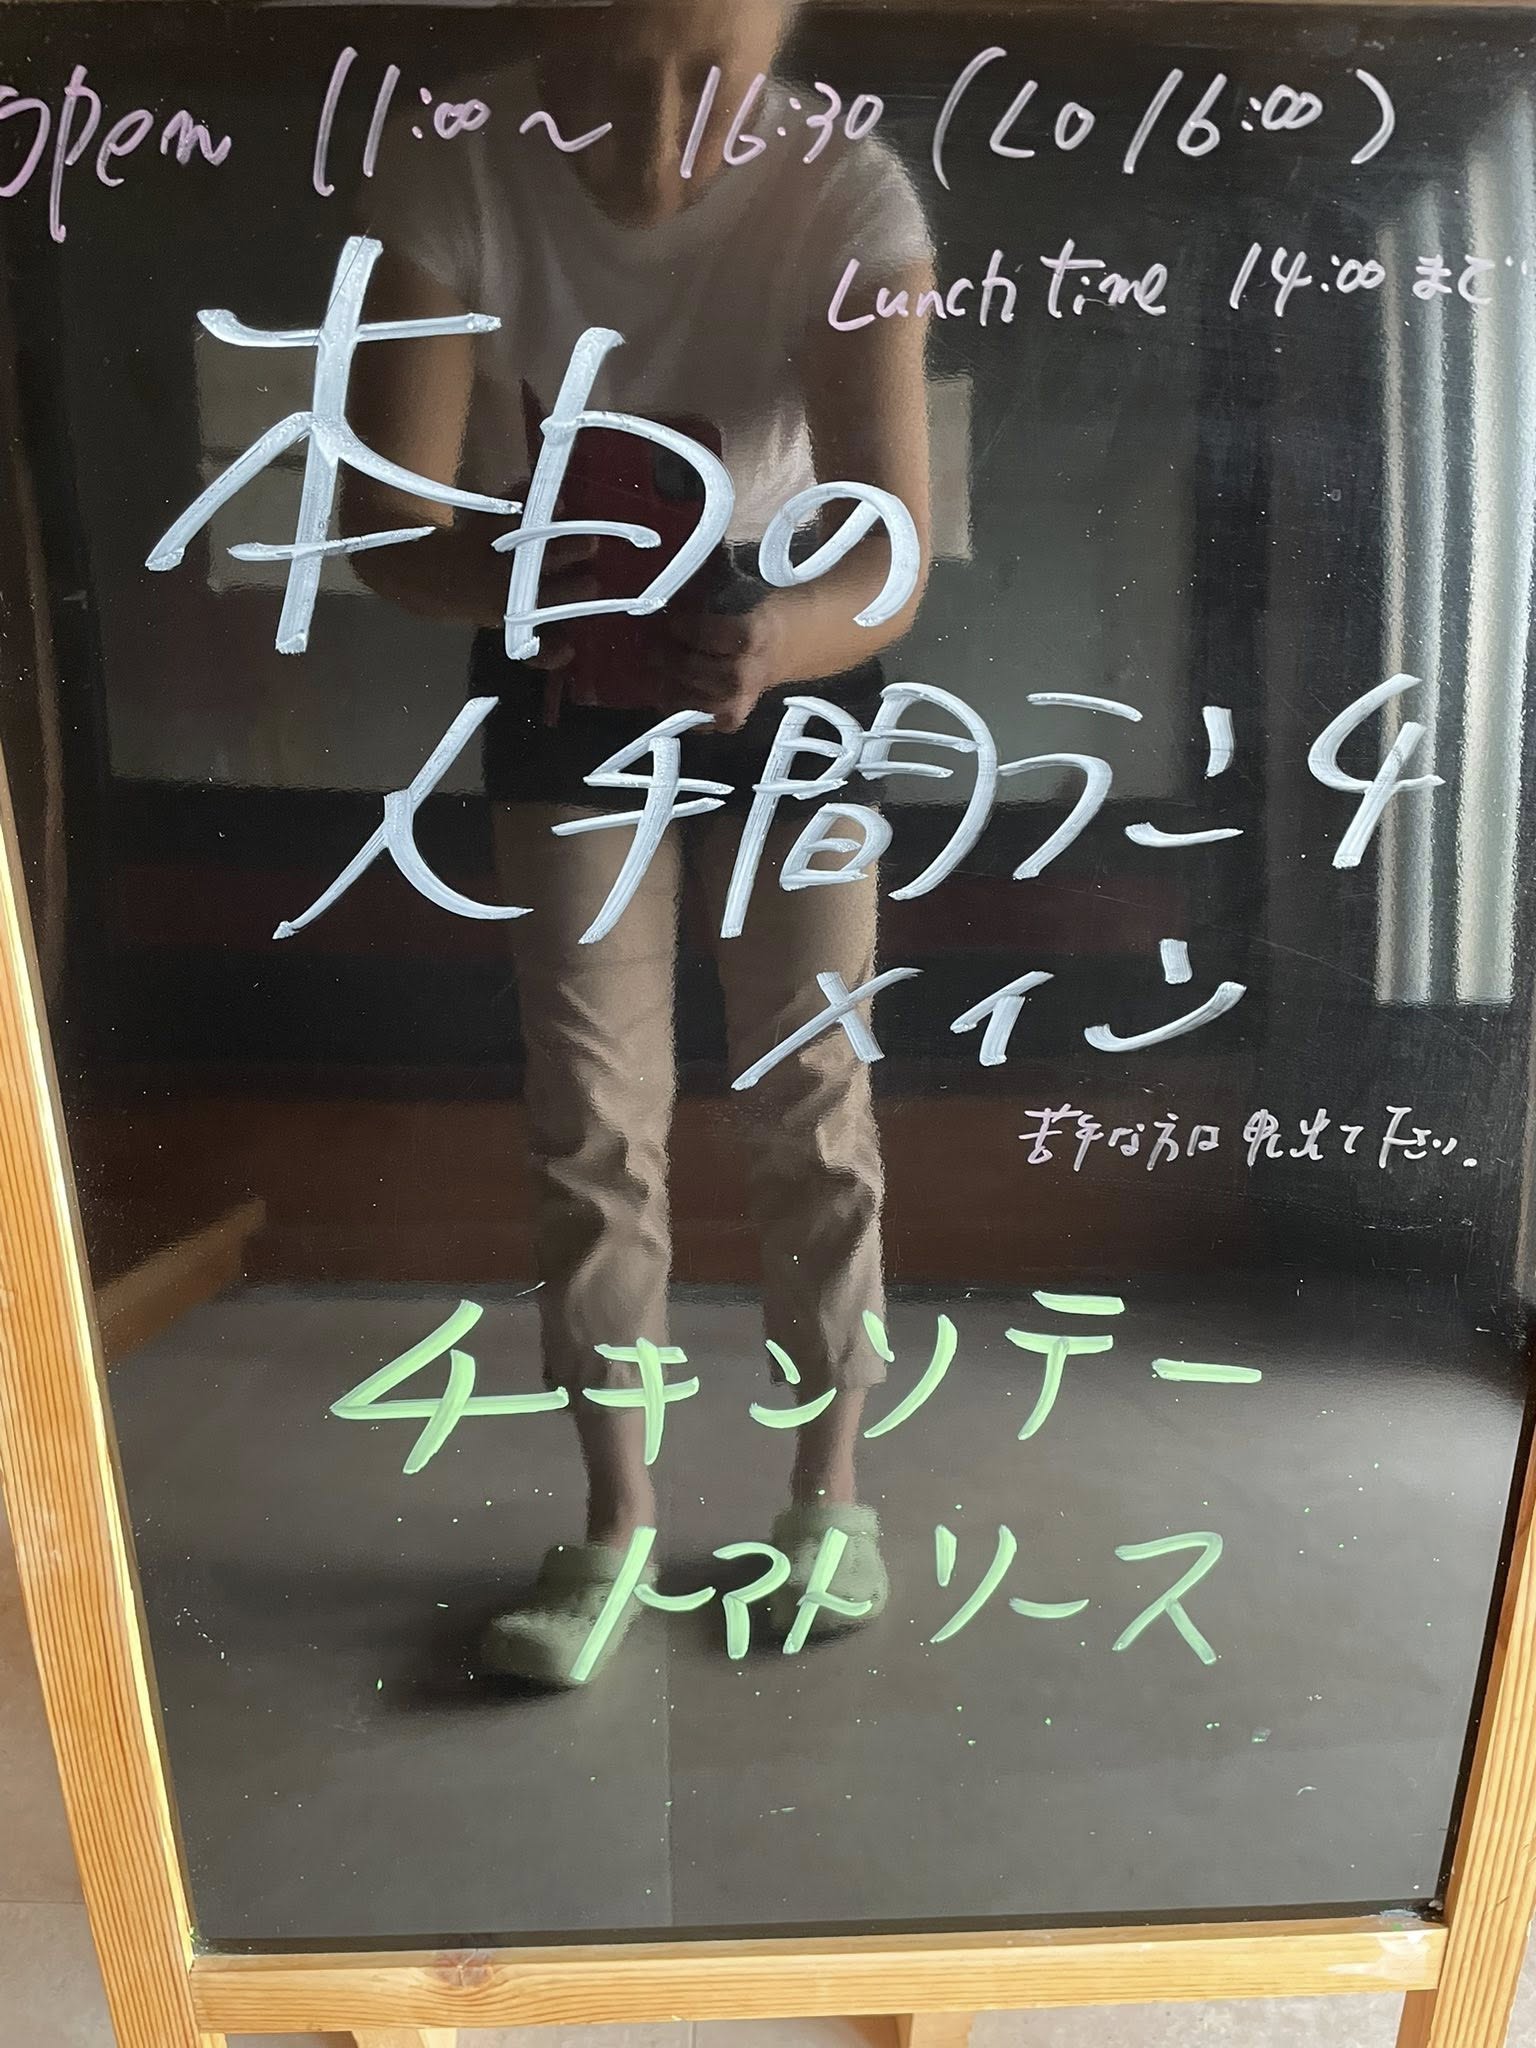 open 11:00～16:30（LO 16:00）
Lunch time 14:00 まで
本日の
人手間ランチ
メイン
苦手な方は申し出て下さい。
チキンソテー
トマトソース